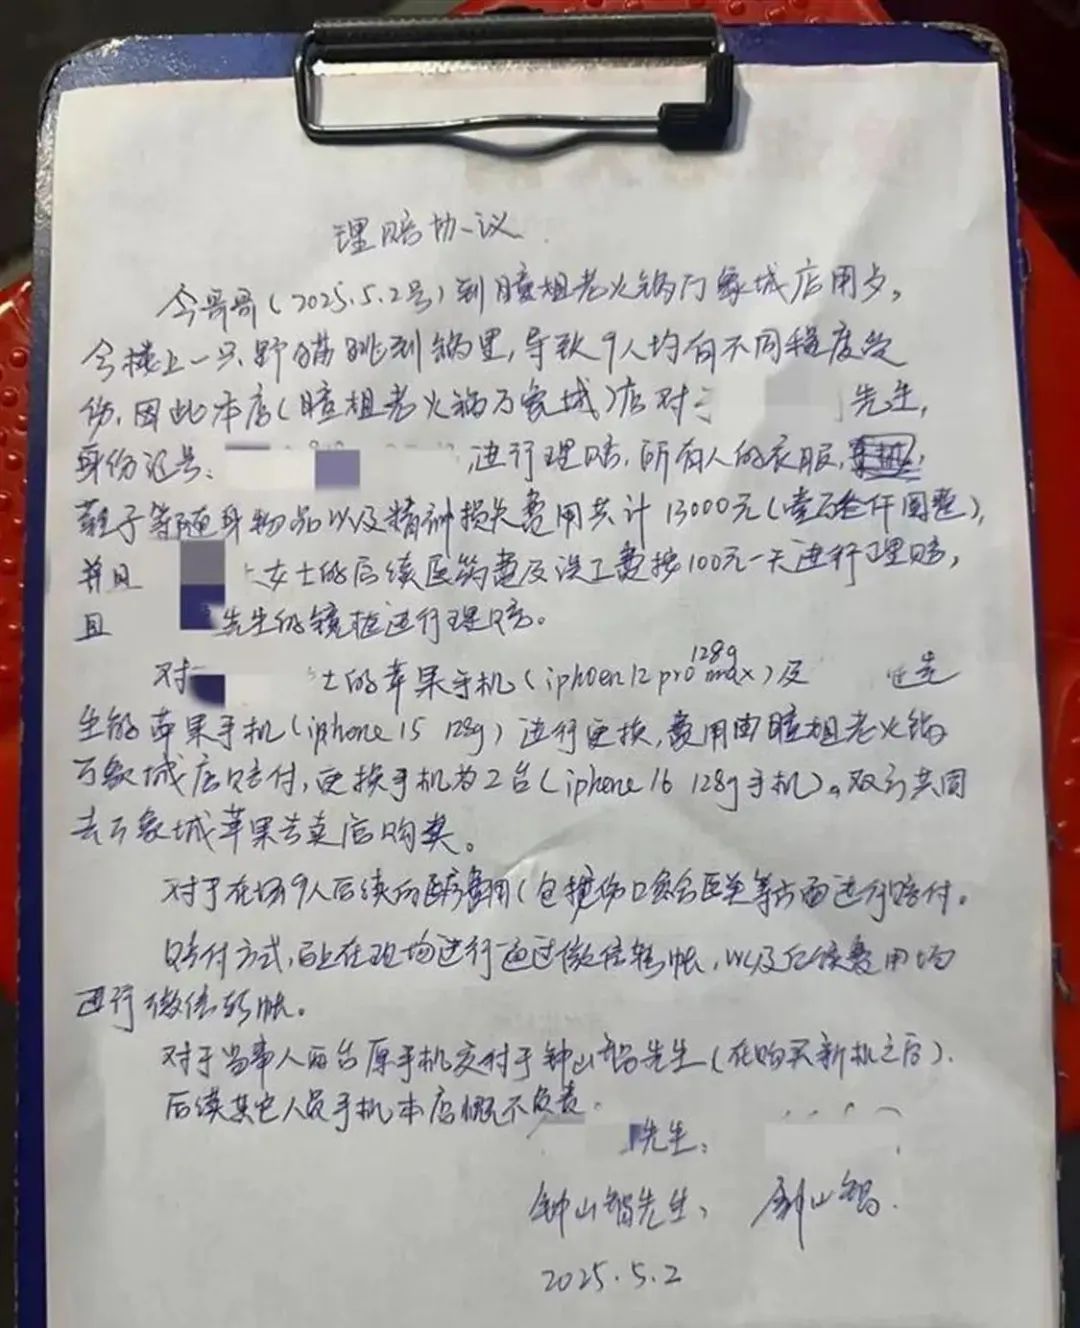 理赔协议
今哥哥(2025.5.2号)到瞳姐老火锅万象城店用夕。
今楼上一只野猫跳到锅里,导致9人均有不同程度受
伤,因此本店(瞳姐老火锅万象城)店对 先生,
身份证号: ,进行理赔,所有人的衣服,
鞋子等随身物品以及精神损失费用共计13000元(壹万叁仟圆整),
并且 女士的后续医药费及误工费按100元一天进行理赔,
且 先生的镜框进行理赔。
对 士的苹果手机(iphoen 12 pro max 128g)及 先
生的苹果手机(iphone 15 128g)进行更换,费用由瞳姐老火锅
万象城店赔付,更换手机为2台(iphone 16 128g手机)。双方共同
去万象城苹果专卖店购买。
对于在场9人后续的医疗费用(包括伤口愈合医美等方面进行赔付。
赔付方式,马上在现场进行通过微信转帐,以及后续费用均
进行微信转帐。
对于当事人两台原手机交付于钟山锠先生(在购买新机之后).
后续其它人员手机本店概不负责.
先生:
钟山 先生: 钟山
2025.5.2